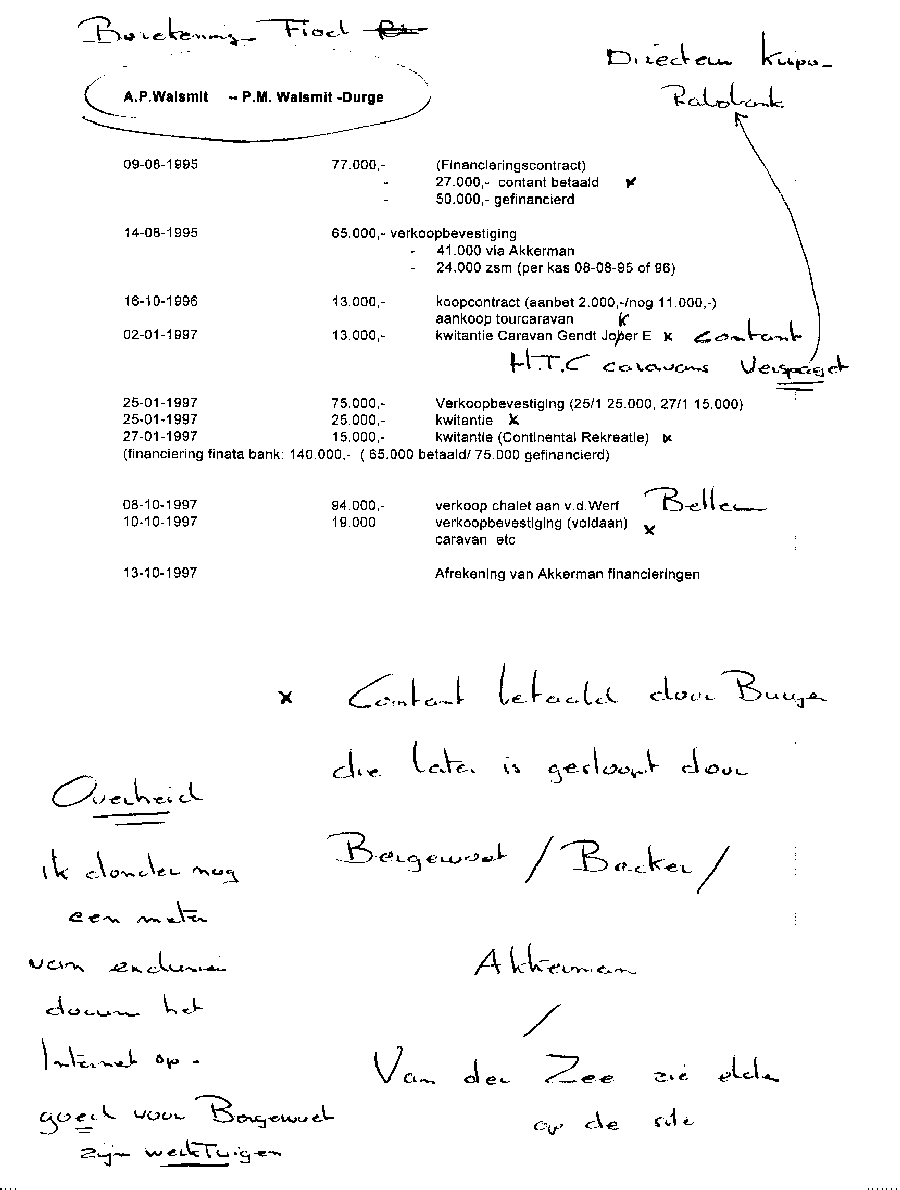 Berekening Fiod
Directeur
Rabobank
A.P.Walsmit -- P.M. Walsmit -Durge
09-08-1995 77.000,- (Financieringscontract)
- 27.000,- contant betaald x
- 50.000,- gefinancierd
14-08-1995 65.000,- verkoopbevestiging
- 41.000 via Akkerman
- 24.000 zsm (per kas 08-08-95 of 96)
16-10-1996 13.000,- koopcontract (aanbet 2.000,-/nog 11.000,-)
aankoop tourcaravan x
02-01-1997 13.000,- kwitantie Caravan Gendt Joper E x Contant
H.T.C caravans Verspaget
25-01-1997 75.000,- Verkoopbevestiging (25/1 25.000, 27/1 15.000)
25-01-1997 25.000,- kwitantie x
27-01-1997 15.000,- kwitantie (Continental Rekreatie) x
(financiering finata bank: 140.000,- ( 65.000 betaald/ 75.000 gefinancierd)
08-10-1997 94.000,- verkoop chalet aan v.d.Werf Bellen
10-10-1997 19.000 verkoopbevestiging (voldaan) x
caravan etc
13-10-1997 Afrekening van Akkerman financieringen
x Contant betaald door Burger
die later is gesloopt door
Borgewoet / Backer /
Akkerman
/
Van der Zee zie elder
op de site
Overheid
Ik donder nog
een meter
van
daarvan het
Internet op -
goed voor Borgewoet
zijn werkTuigen